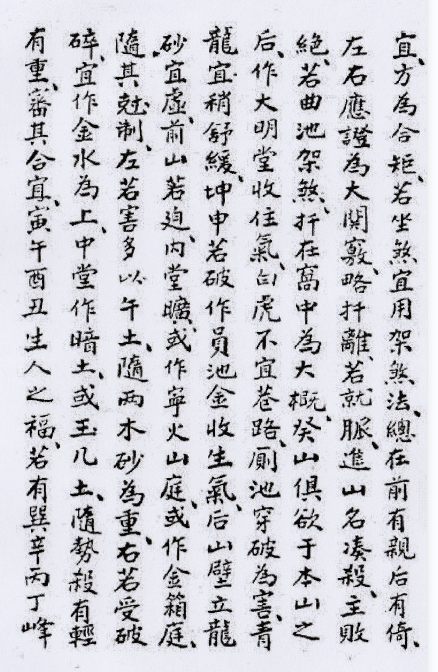 宜、方為合矩、若坐煞宜用架煞法、總在前有親后有倚、
左右應證為大関竅、略扦離、若就脈、進山名凑殺、主敗
絕、若曲池架煞、扦在窩中為大概、癸山俱欲于本山之
后、作大明堂收住氣、白虎不宜巷路、厠池穿破為害、青
龍宜稍舒緩、坤申若破作員池金收生氣、后山壁立龍
砂宜虛、前山若迫、內堂曠、或作寧火山庭、或作金箱庭、
隨其尅制、左若害多以午土、隨两木砂為重、右若受破
碎、宜作金水為上、中堂作暗土、或玉几土、隨勢殺有輕
有重、審其合宜、寅午酉丑生人之福、若有巽辛丙丁峰